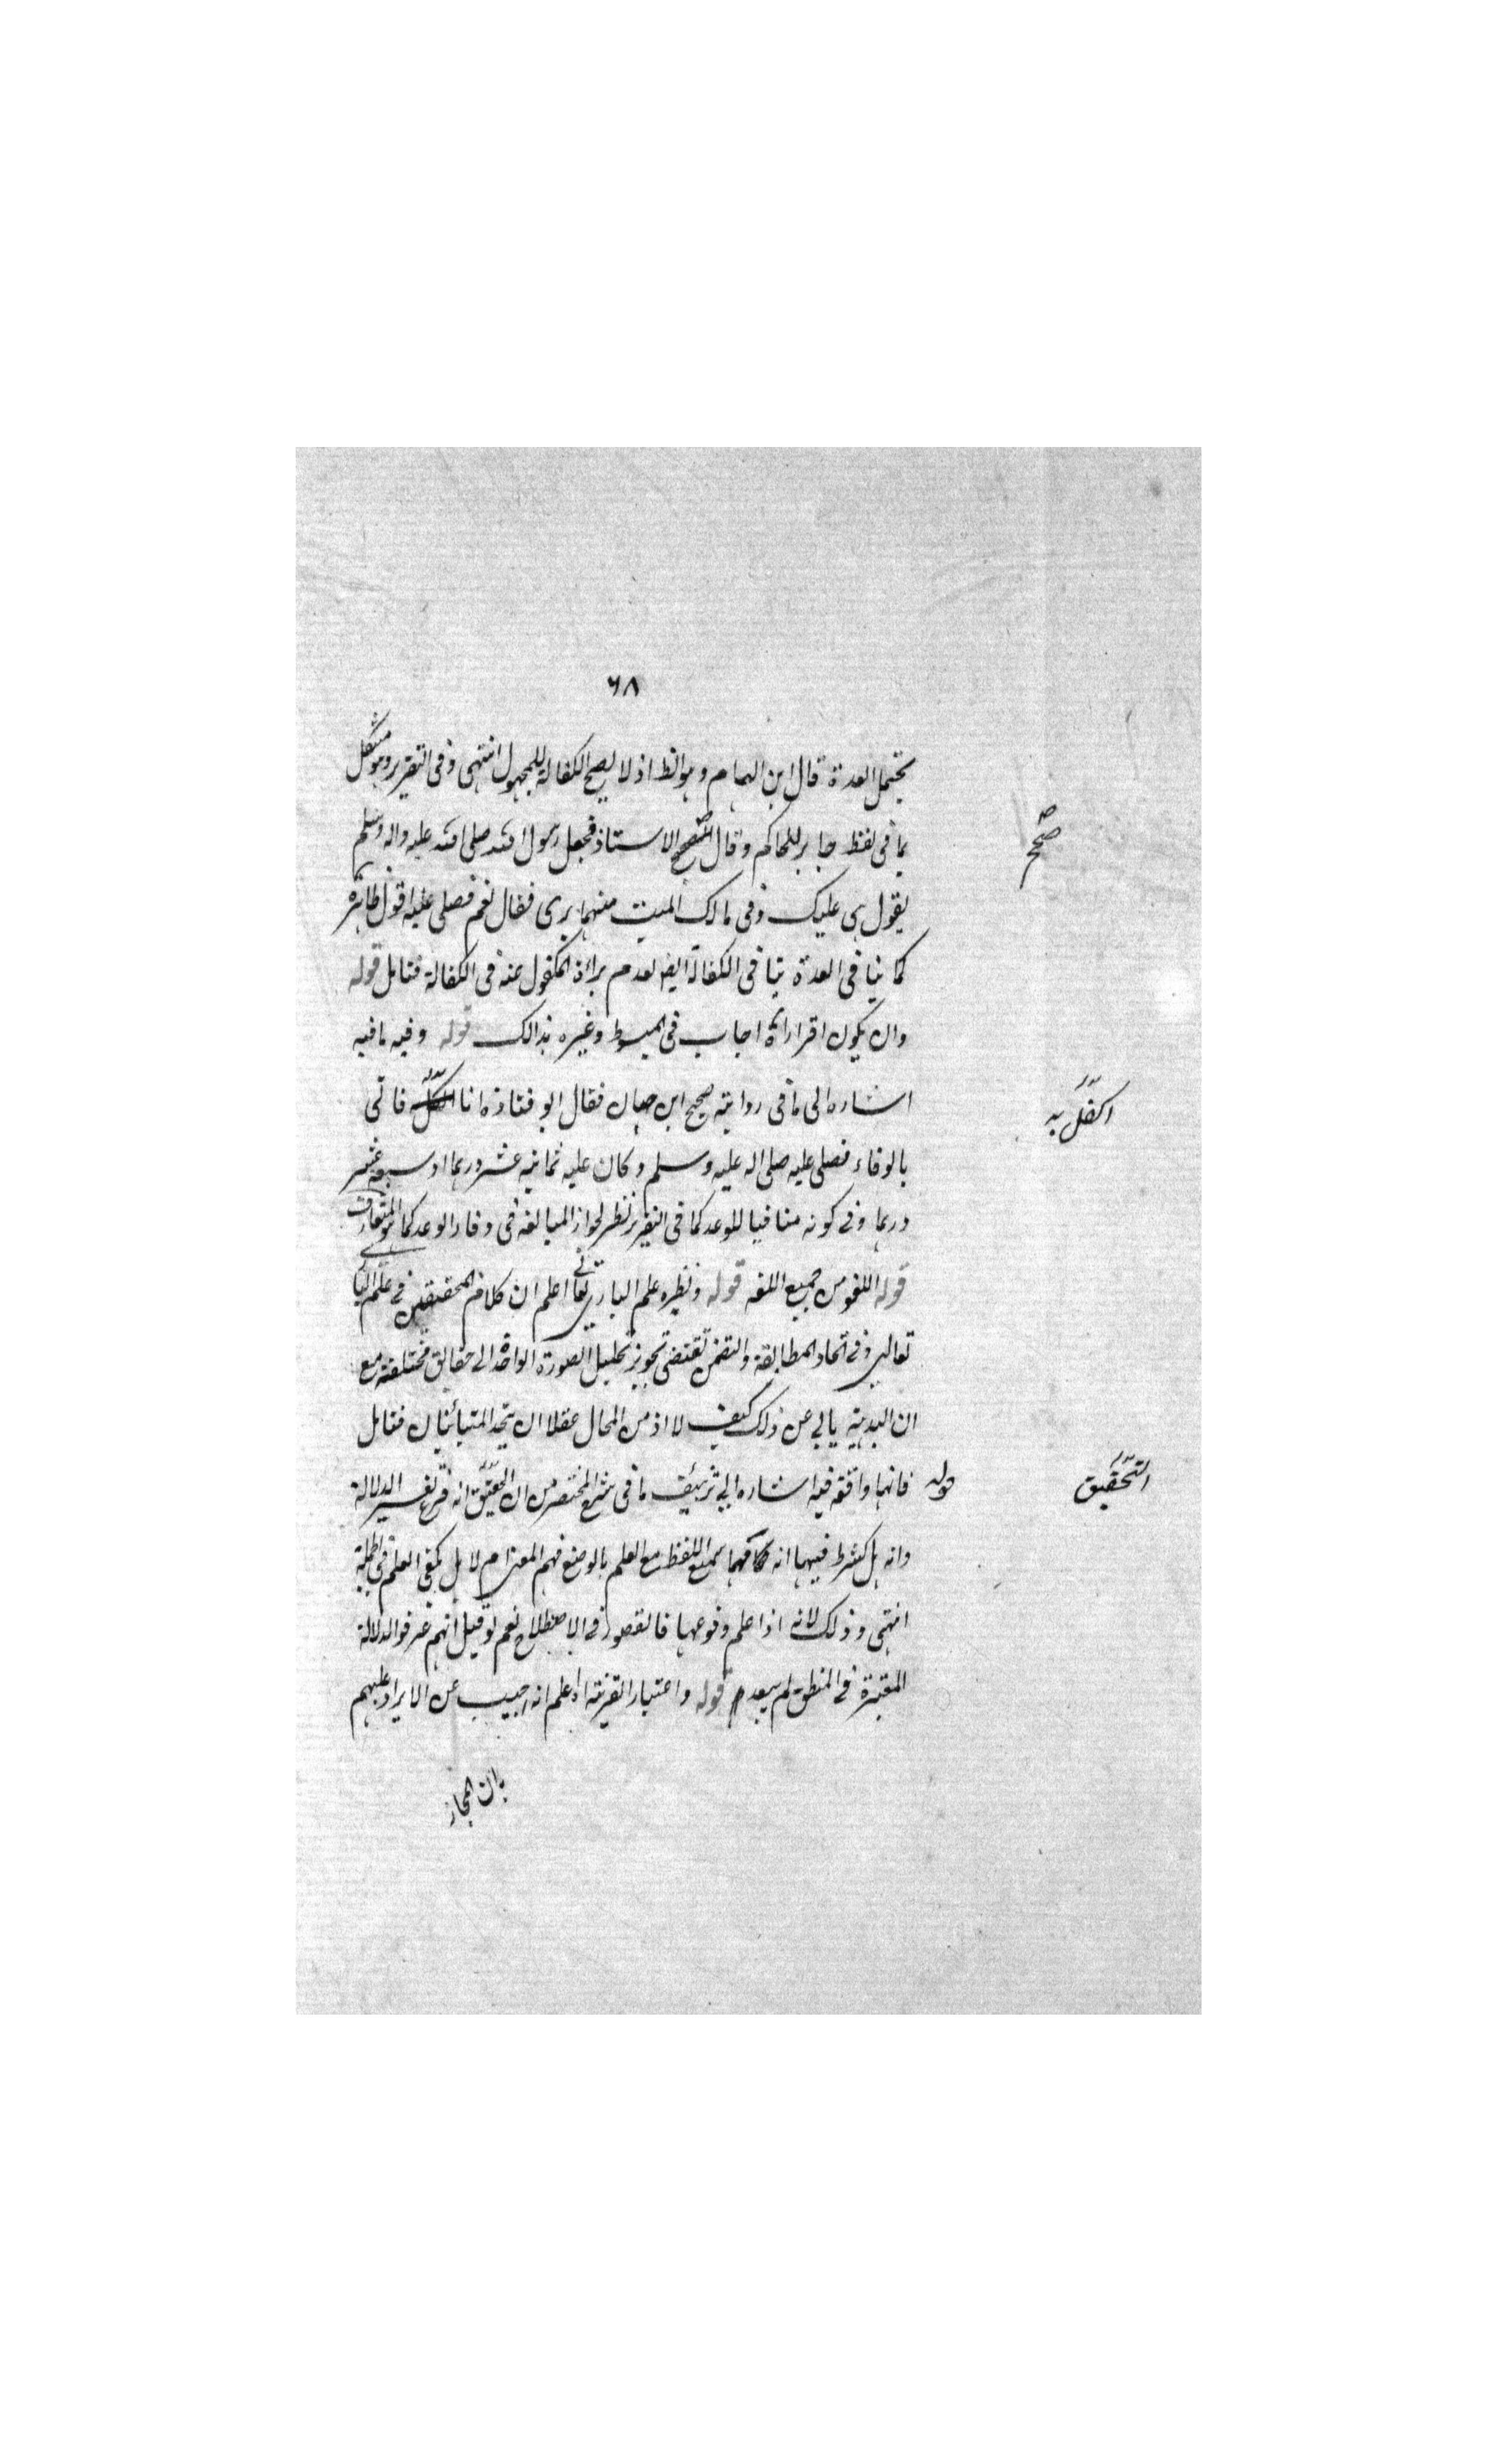 ٦٨
يحتمل العدة قال ابن الهمام وهو الظ اذ لا يصح الكفالة للمجهول انتهى وفى التقرير وهو مشكل
بما فى لفظ جابر للحاكم وقال الاستاذ فجعل رسول الله صلى الله عليه واله وسلم
صح
يقول هى عليك وفى مالك الميت منهما برى فقال نعم فصلى عليه اقول ظاهره
كما ينافى العدة ينافى الكفالة ايضا لعدم براءة المكفول عنه فى الكفالة فتامل قوله
وان يكون اقرارا اه اجاب فى المبسوط وغيره بذالك قوله وفيه ما فيه
اشاره الى ما فى رواية صحيح ابن حبان فقال ابو قتادة انا فاتى
اكفل به
بالوفاء فصلى عليه صلى اله عليه وسلم وكان عليه ثمانية عشر درهما او سبعة عشر
درهما وفى كونه منافيا للوعد كما فى التقرير نظر لجواز المبالغة فى وفاء الوعد كما هو المتعارف
قوله اللغو من جميع اللغه قوله ونظيره علم البارى تعالى اعلم ان كلام المحققين فى علم
تعالى وفى اتحاد المطابقة والتضمن تقتضى تجويز تحليل الصورة الواحدة الى حقائق مختلفة مع
ان البديهة يابى عن ذلك كيف لا اذ من المحال عقلا ان يتحد المتبائنان فتامل
قوله فانهما وافقه فيه اشاره الى تزئيف ما فى شرح المختصر من ان انه فرع تفسير الدلالة
التحقيق
وانه هل يشترط فيها انه سمع اللفظ مع العلم بالوضع فهم المعنى ام لا بل يكفى العلم فى الجملة
انتهى وذلك لانه اذا علم وقوعها فالقصور فى الاصطلاح نعم لو قيل انهم عرفوا الدلالة
المعتبرة فى المنطق لم يبعد قوله واعتبار القرينة اه اعلم انه اجيب عن الايراد عليهم
بان المجاز